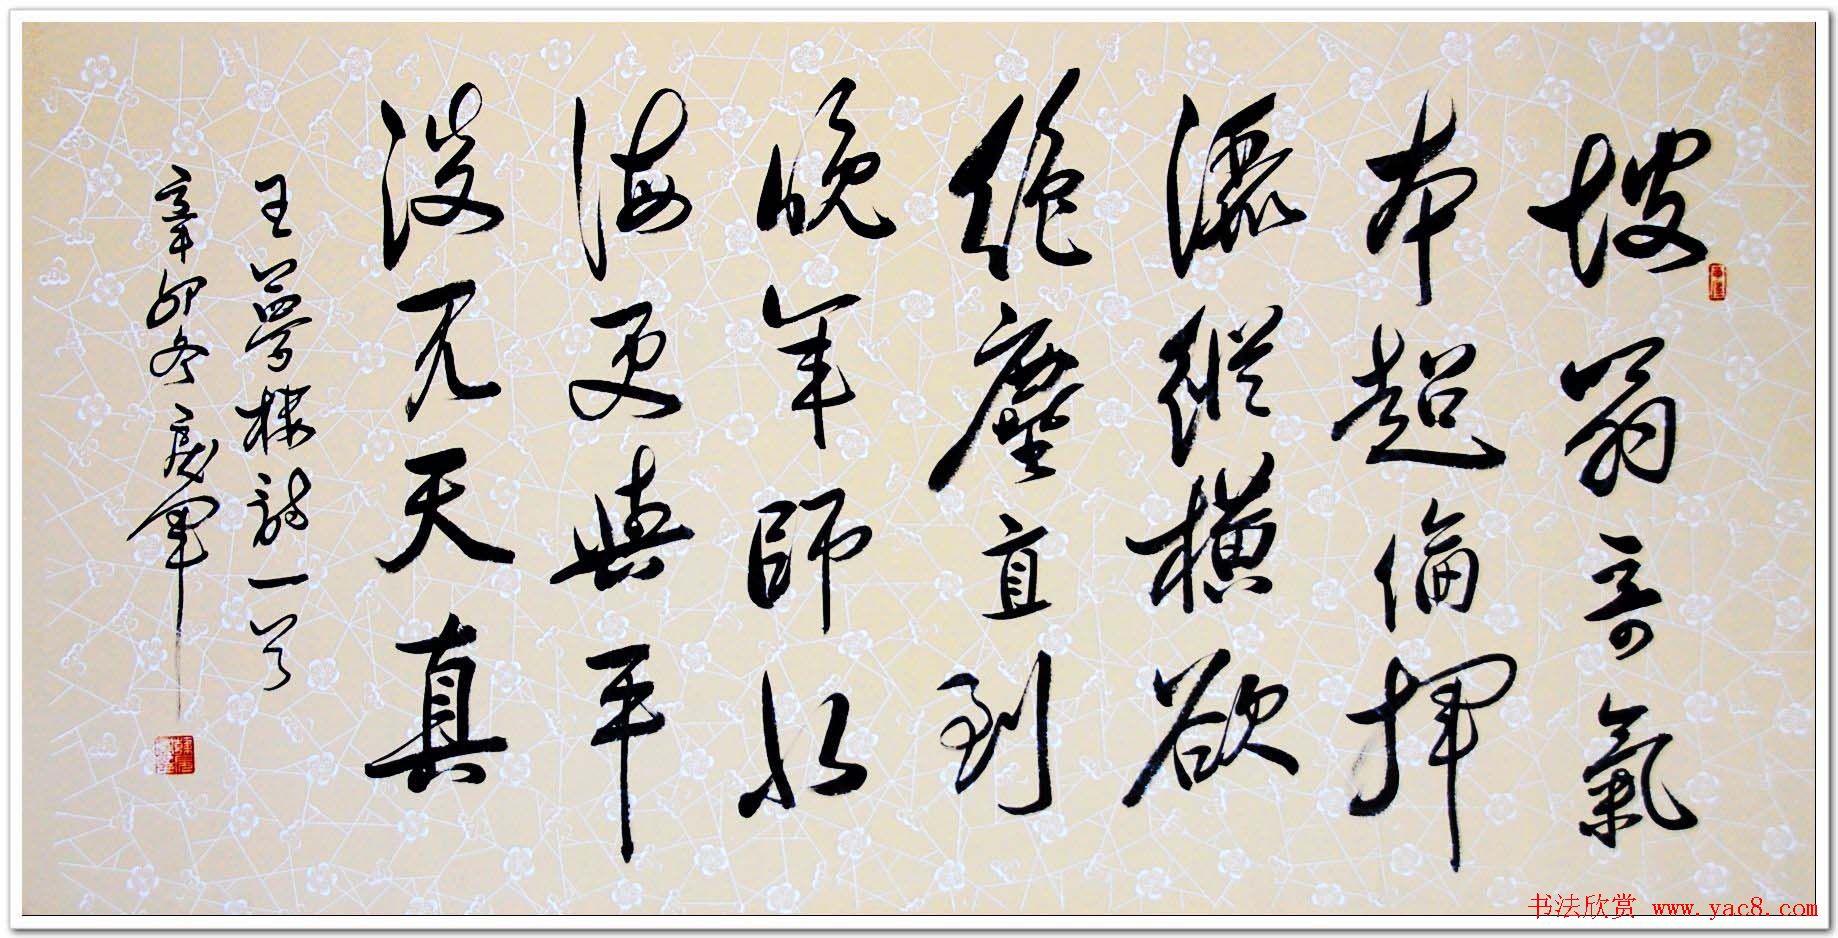 坡翁奇氣
本超倫揮
灑縱橫欲
絕塵直到
晚年師北
海更與平
淡見天真
王夢樓詩一首
辛卯冬 軍
书法欣赏 www.yac8.com